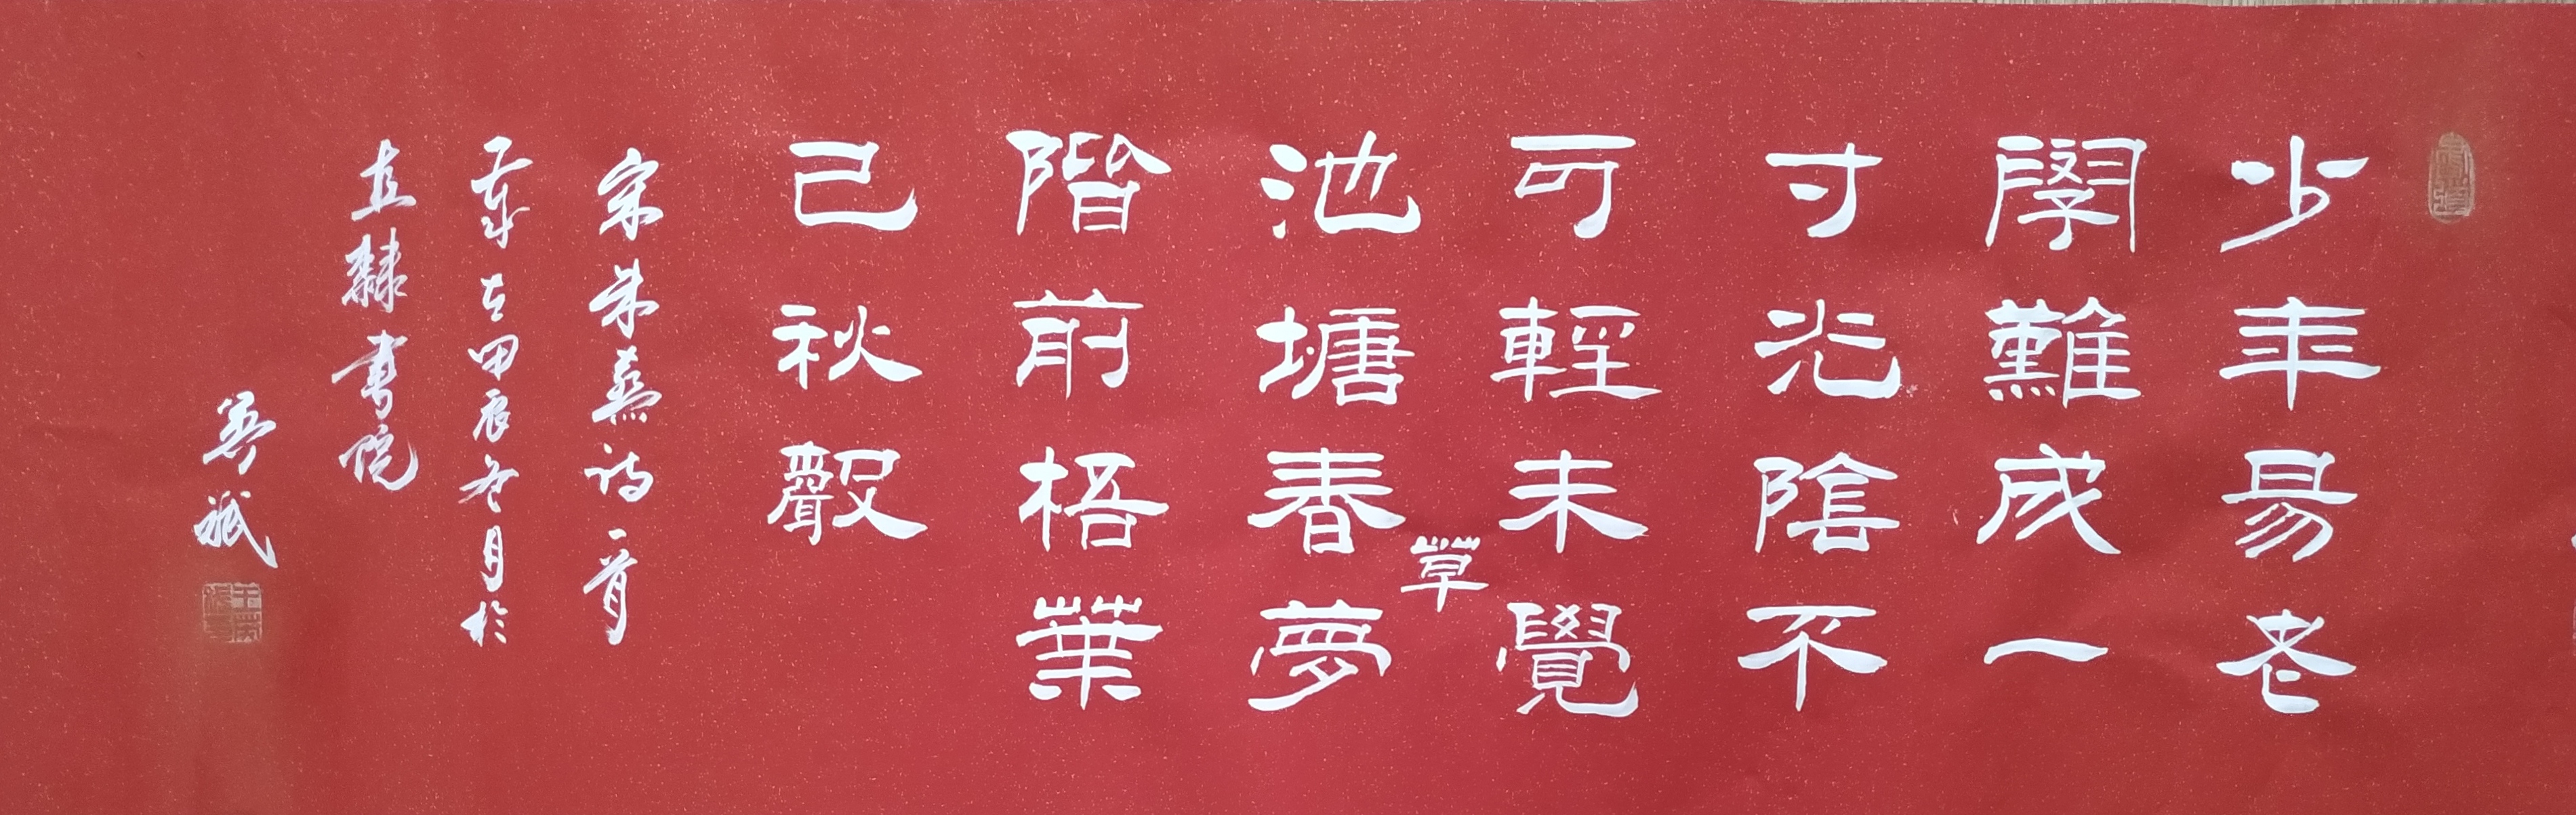 少年易老
學難成一
寸光陰不
可輕未覺
池塘春草夢
階前梧葉
已秋聲
宋朱熹詩一首
歲在甲辰冬月於
立隸書院